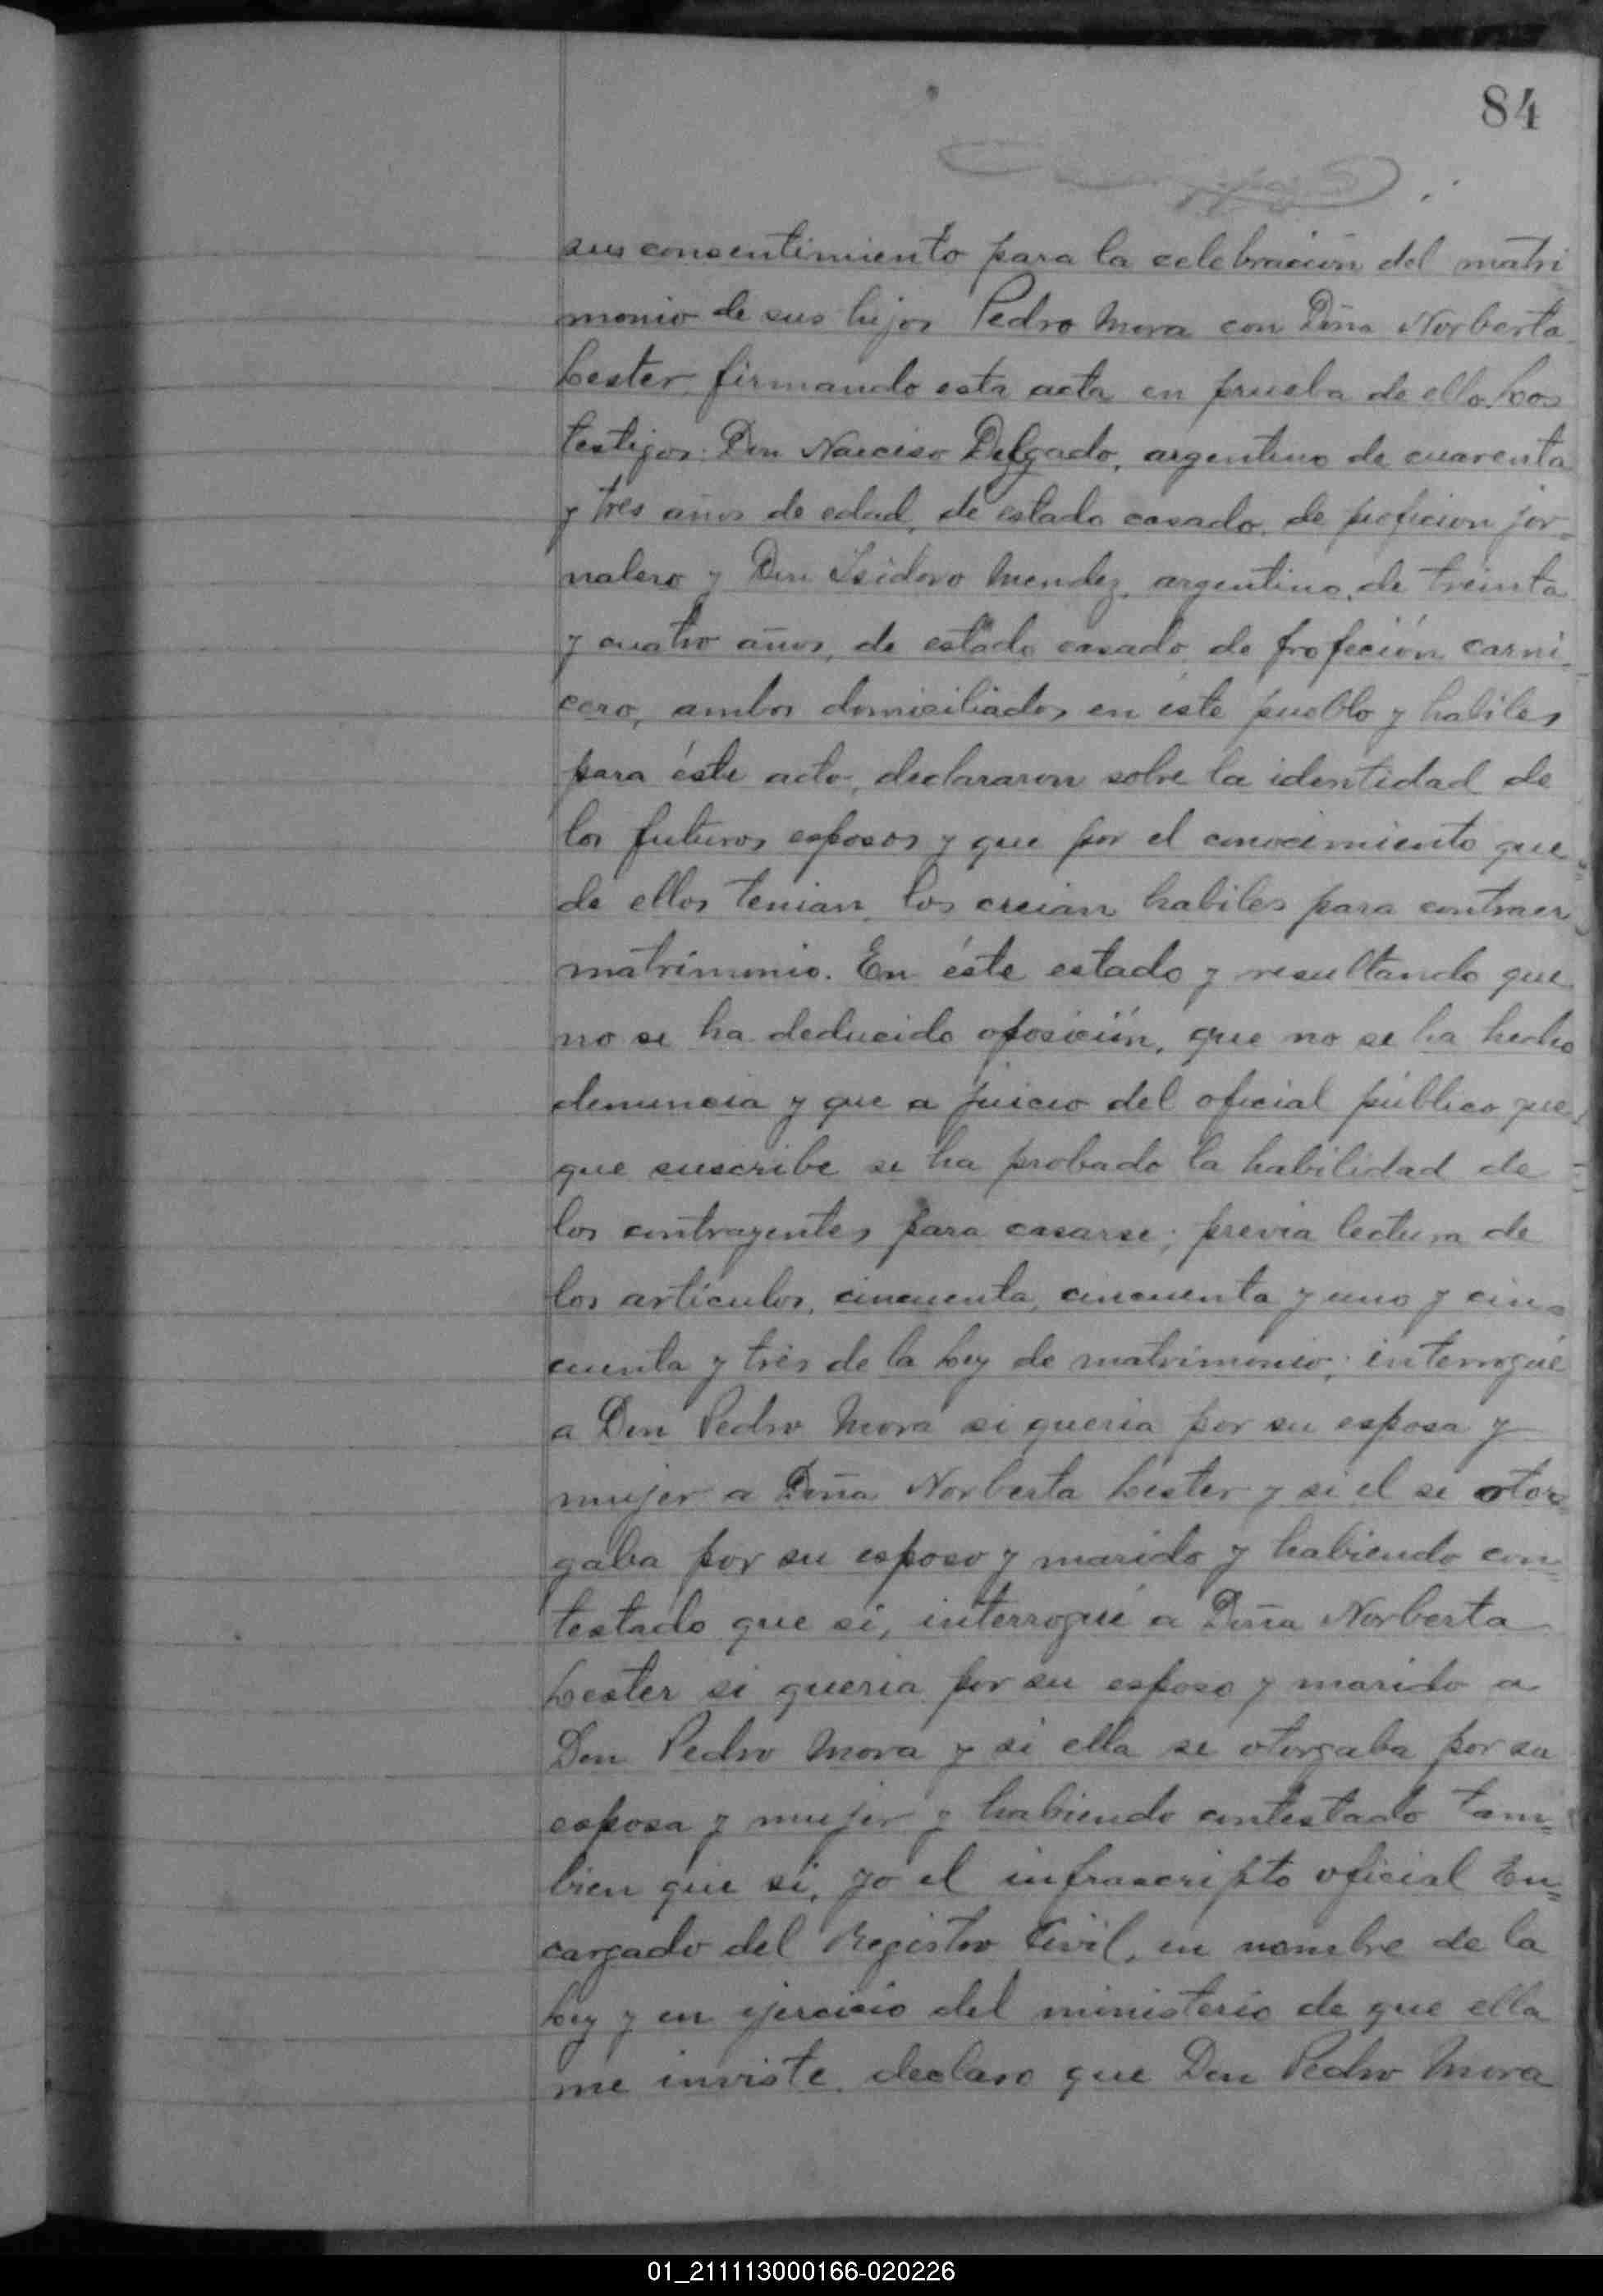 84
sus consentimiento para la celebración del matri
monio de sus hijos Pedro Mora con Doña Norberta
Lester, firmando esta acta en prueba de ello. Los
testigos: Don Narciso Delgado, argentino de cuarenta
y tres años de edad, de estado casado, de profecion jor=
nalero y Don Isidoro Mendez, argentino, de treinta
y cuatro años, de estado casado, de profeción carni=
cero, ambos domiciliados en éste pueblo y habiles
para éste acto, declararon sobre la identidad de
los futuros esposos y que por el conocimiento que
de ellos tenian, los creian habiles para contraer
matrimonio. En éste estado y resultando que
no se ha deducido oposición, que no se ha hecho
denuncia y que a juicio del oficial público que
que suscribe se ha probado la habilidad de
los contrayentes para casarse; previa lectura de
los artículos, cincuenta, cincuenta y uno y cin=
cuenta y tres de la Ley de matrimonio; interrogué
a Don Pedro Mora si queria por su esposa y
mujer a Doña Norberta Lester y si el se otor=
gaba por su esposo y marido y habiendo con=
testado que si, interrogué a Doña Norberta
Lester si queria por su esposo y marido a
Don Pedro Mora y si ella se otorgaba por su
esposa y mujer y habiendo contestado tam=
bien que si, yo el infrascripto oficial En=
cargado del Registro Civil, en nombre de la
Ley y en ejercicio del ministerio de que ella
me inviste, declaro que Don Pedro Mora
01_211113000166-020226